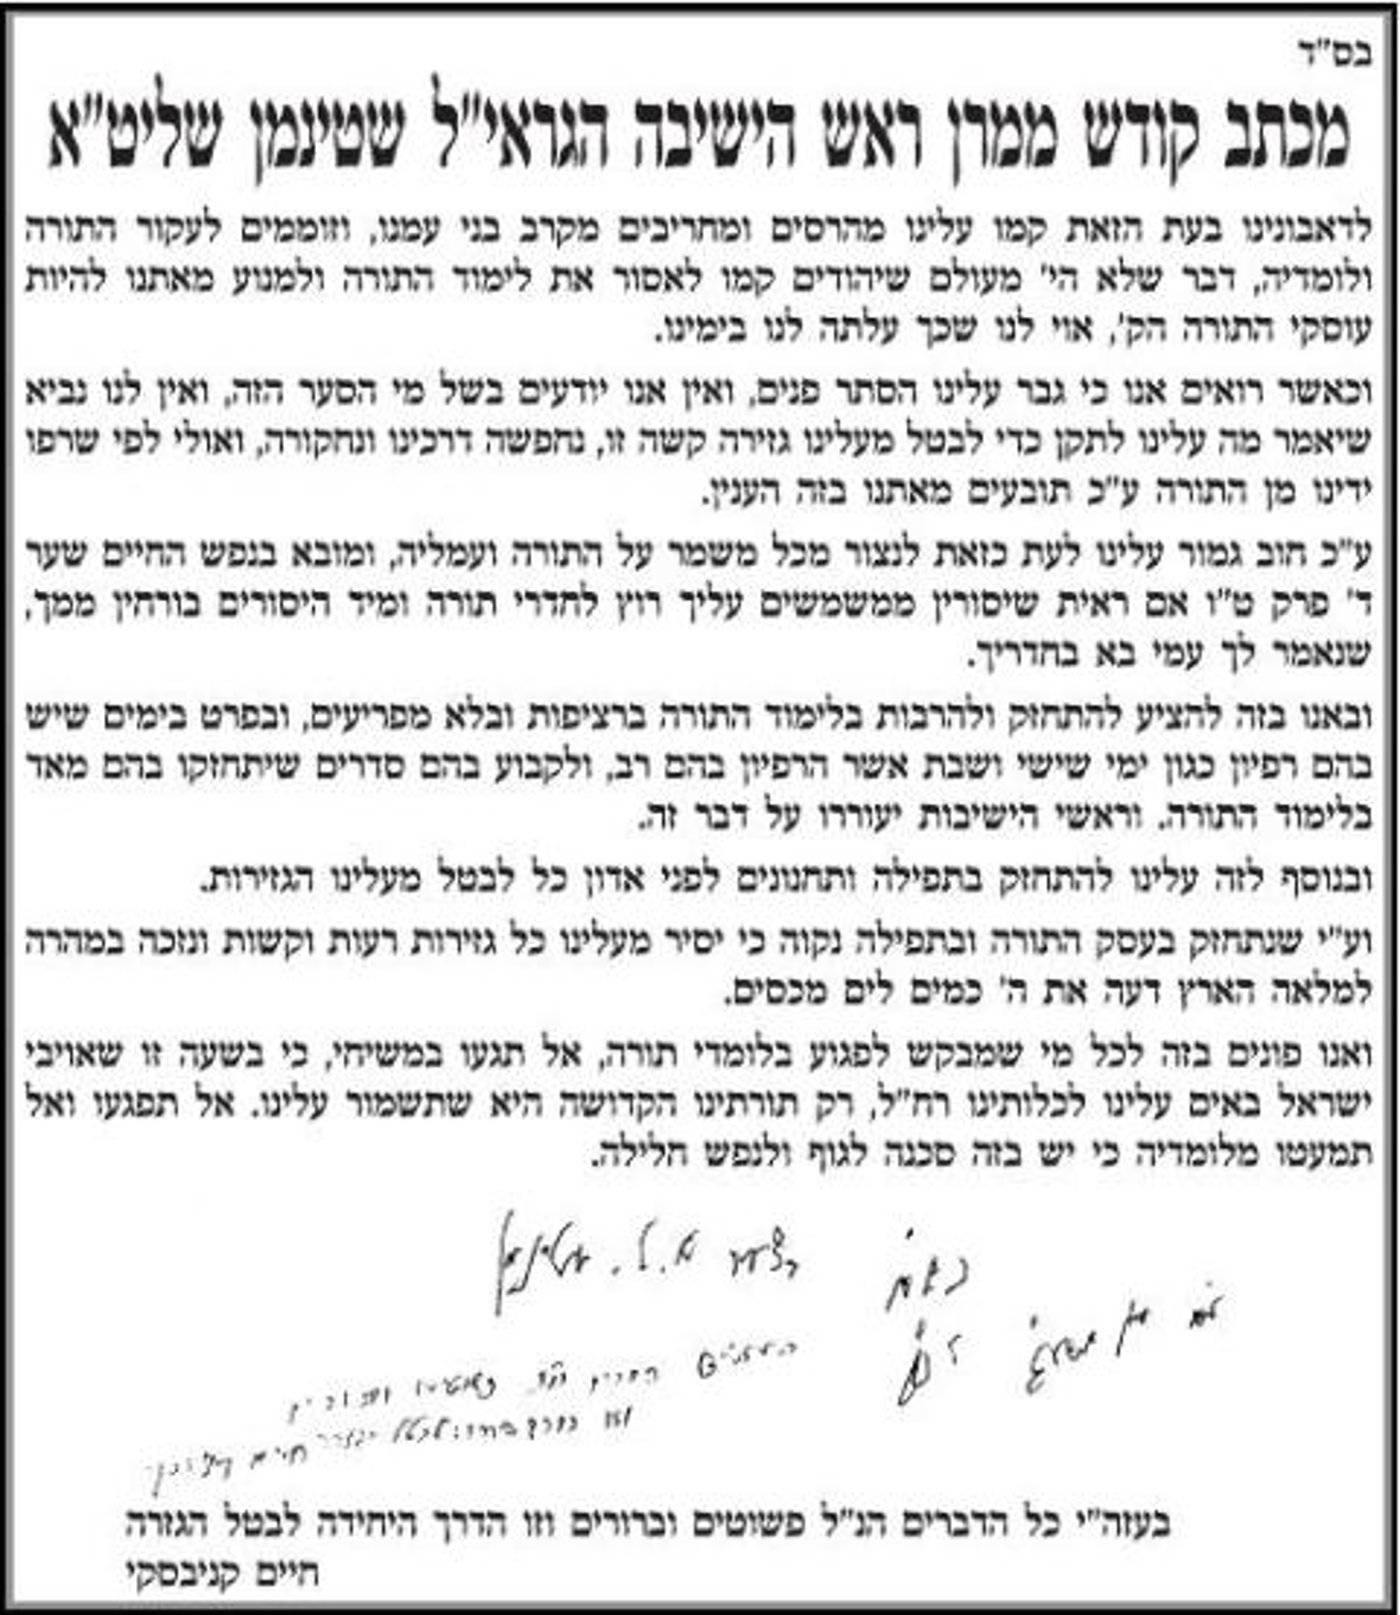 בס"ד
מכתב קודש ממרן ראש הישיבה הגראי"ל שטינמן שליט"א
לדאבונינו בעת הזאת קמו עלינו מהרסים ומחריבים מקרב בני עמנו, וזוממים לעקור התורה
ולומדיה, דבר שלא הי' מעולם שיהודים קמו לאסור את לימוד התורה ולמנוע מאתנו להיות
עוסקי התורה הק', אוי לנו שכך עלתה לנו בימינו.
וכאשר רואים אנו כי גבר עלינו הסתר פנים, ואין אנו יודעים בשל מי הסער הזה, ואין לנו נביא
שיאמר מה עלינו לתקן כדי לבטל מעלינו גזירה קשה זו, נחפשה דרכינו ונחקורה, ואולי לפי שרפו
ידינו מן התורה ע"כ תובעים מאתנו בזה הענין.
ע"כ חוב גמור עלינו לעת כזאת לנצור מכל משמר על התורה ועמליה, ומובא בנפש החיים שער
ד' פרק ט"ו אם ראית שיסורין ממשמשים עליך רוץ לחדרי תורה ומיד היסורים בורחין ממך,
שנאמר לך עמי בא בחדריך.
ובאנו בזה להציע להתחזק ולהרבות בלימוד התורה ברציפות ובלא מפריעים, ובפרט בימים שיש
בהם רפיון כגון ימי שישי ושבת אשר הרפיון בהם רב, ולקבוע בהם סדרים שיתחזקו בהם מאד
בלימוד התורה. וראשי הישיבות יעוררו על דבר זה.
ובנוסף לזה עלינו להתחזק בתפילה ותחנונים לפני אדון כל לבטל מעלינו הגזירות.
וע"י שנתחזק בעסק התורה ובתפילה נקוה כי יסיר מעלינו כל גזירות רעות וקשות ונזכה במהרה
למלאה הארץ דעה את ה' כמים לים מכסים.
ואנו פונים בזה לכל מי שמבקש לפגוע בלומדי תורה, אל תגעו במשיחי, כי בשעה זו שאויבי
ישראל באים עלינו לכלותינו רח"ל, רק תורתינו הקדושה היא שתשמור עלינו. אל תפגעו ואל
תמעטו מלומדיה כי יש בזה סכנה לגוף ולנפש חלילה.
א.ל. שטינמן
חיים קניבסקי
בעזה"י כל הדברים הנ"ל פשוטים וברורים וזו הדרך היחידה לבטל הגזרה
חיים קניבסקי